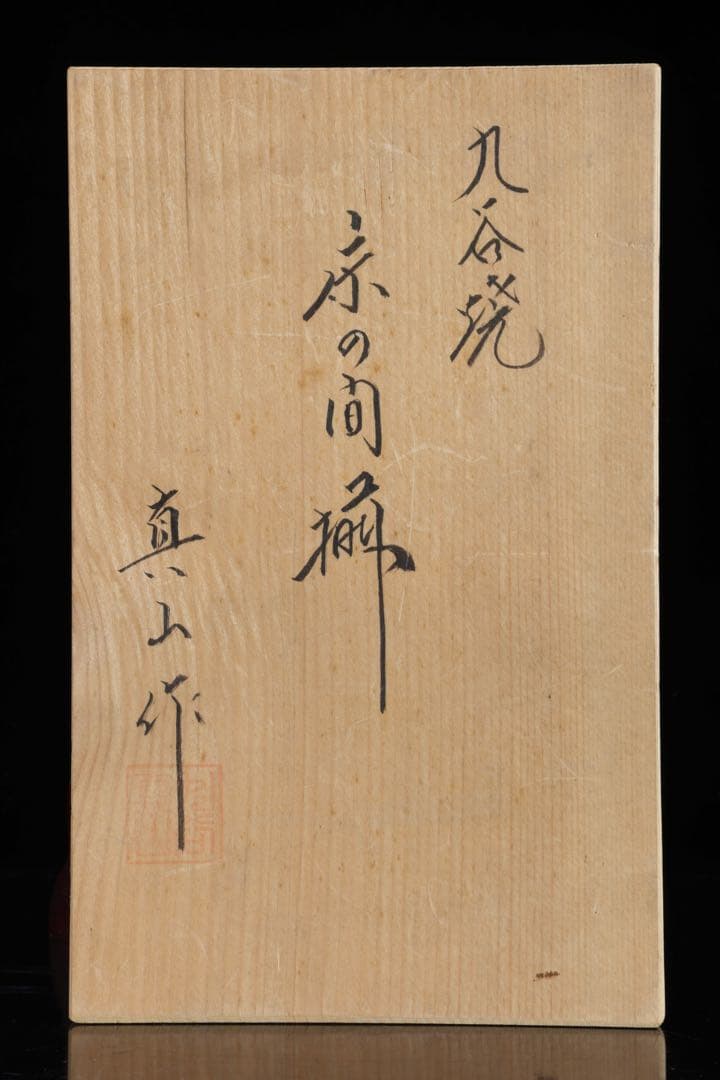 九谷焼
床の間揃
真山作